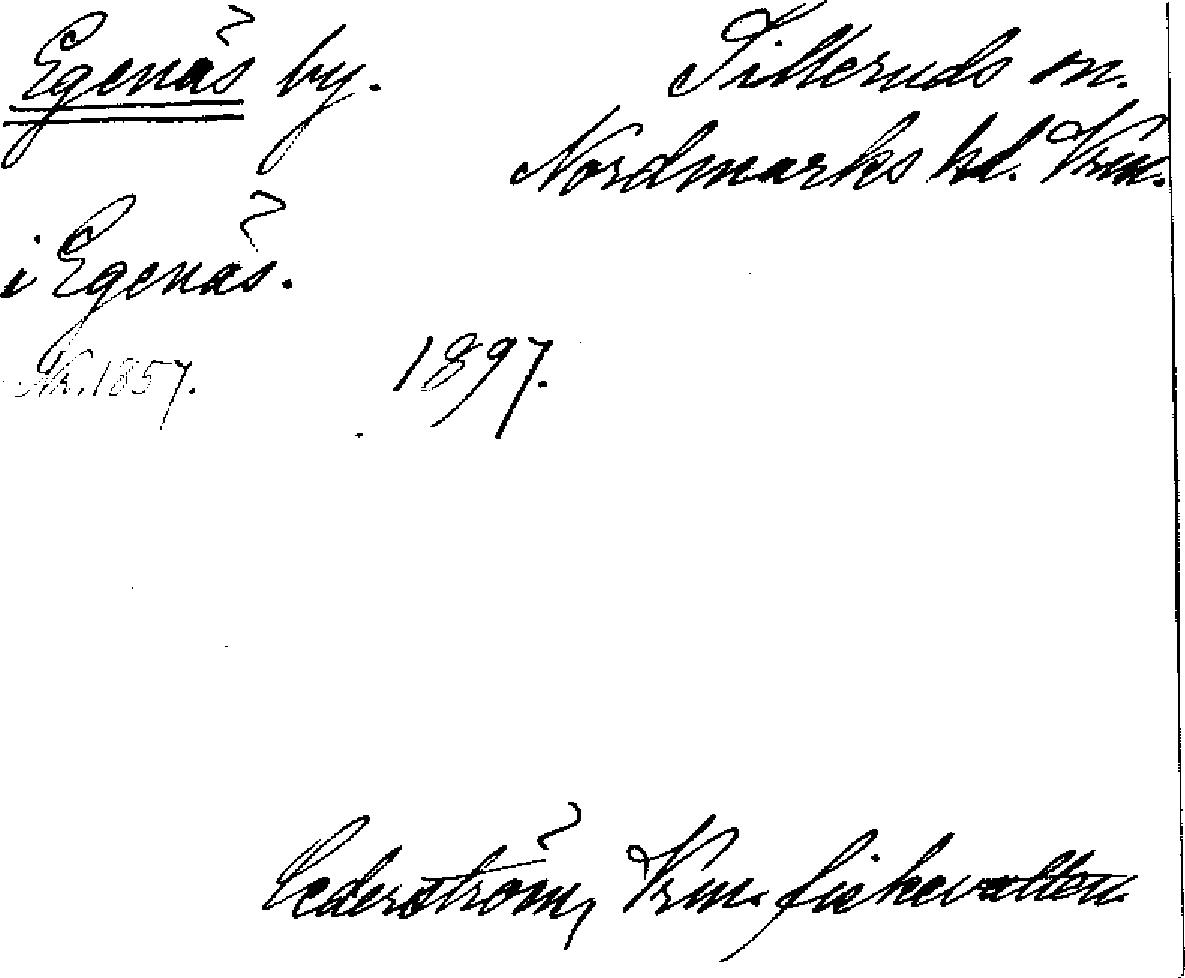 Egenäs by. Silleruds sn.
Nordmarks hd. Vrm.
i Egenäs.
Nk. 1857. 1897.
Cederström, Vrm. fiskevatten.